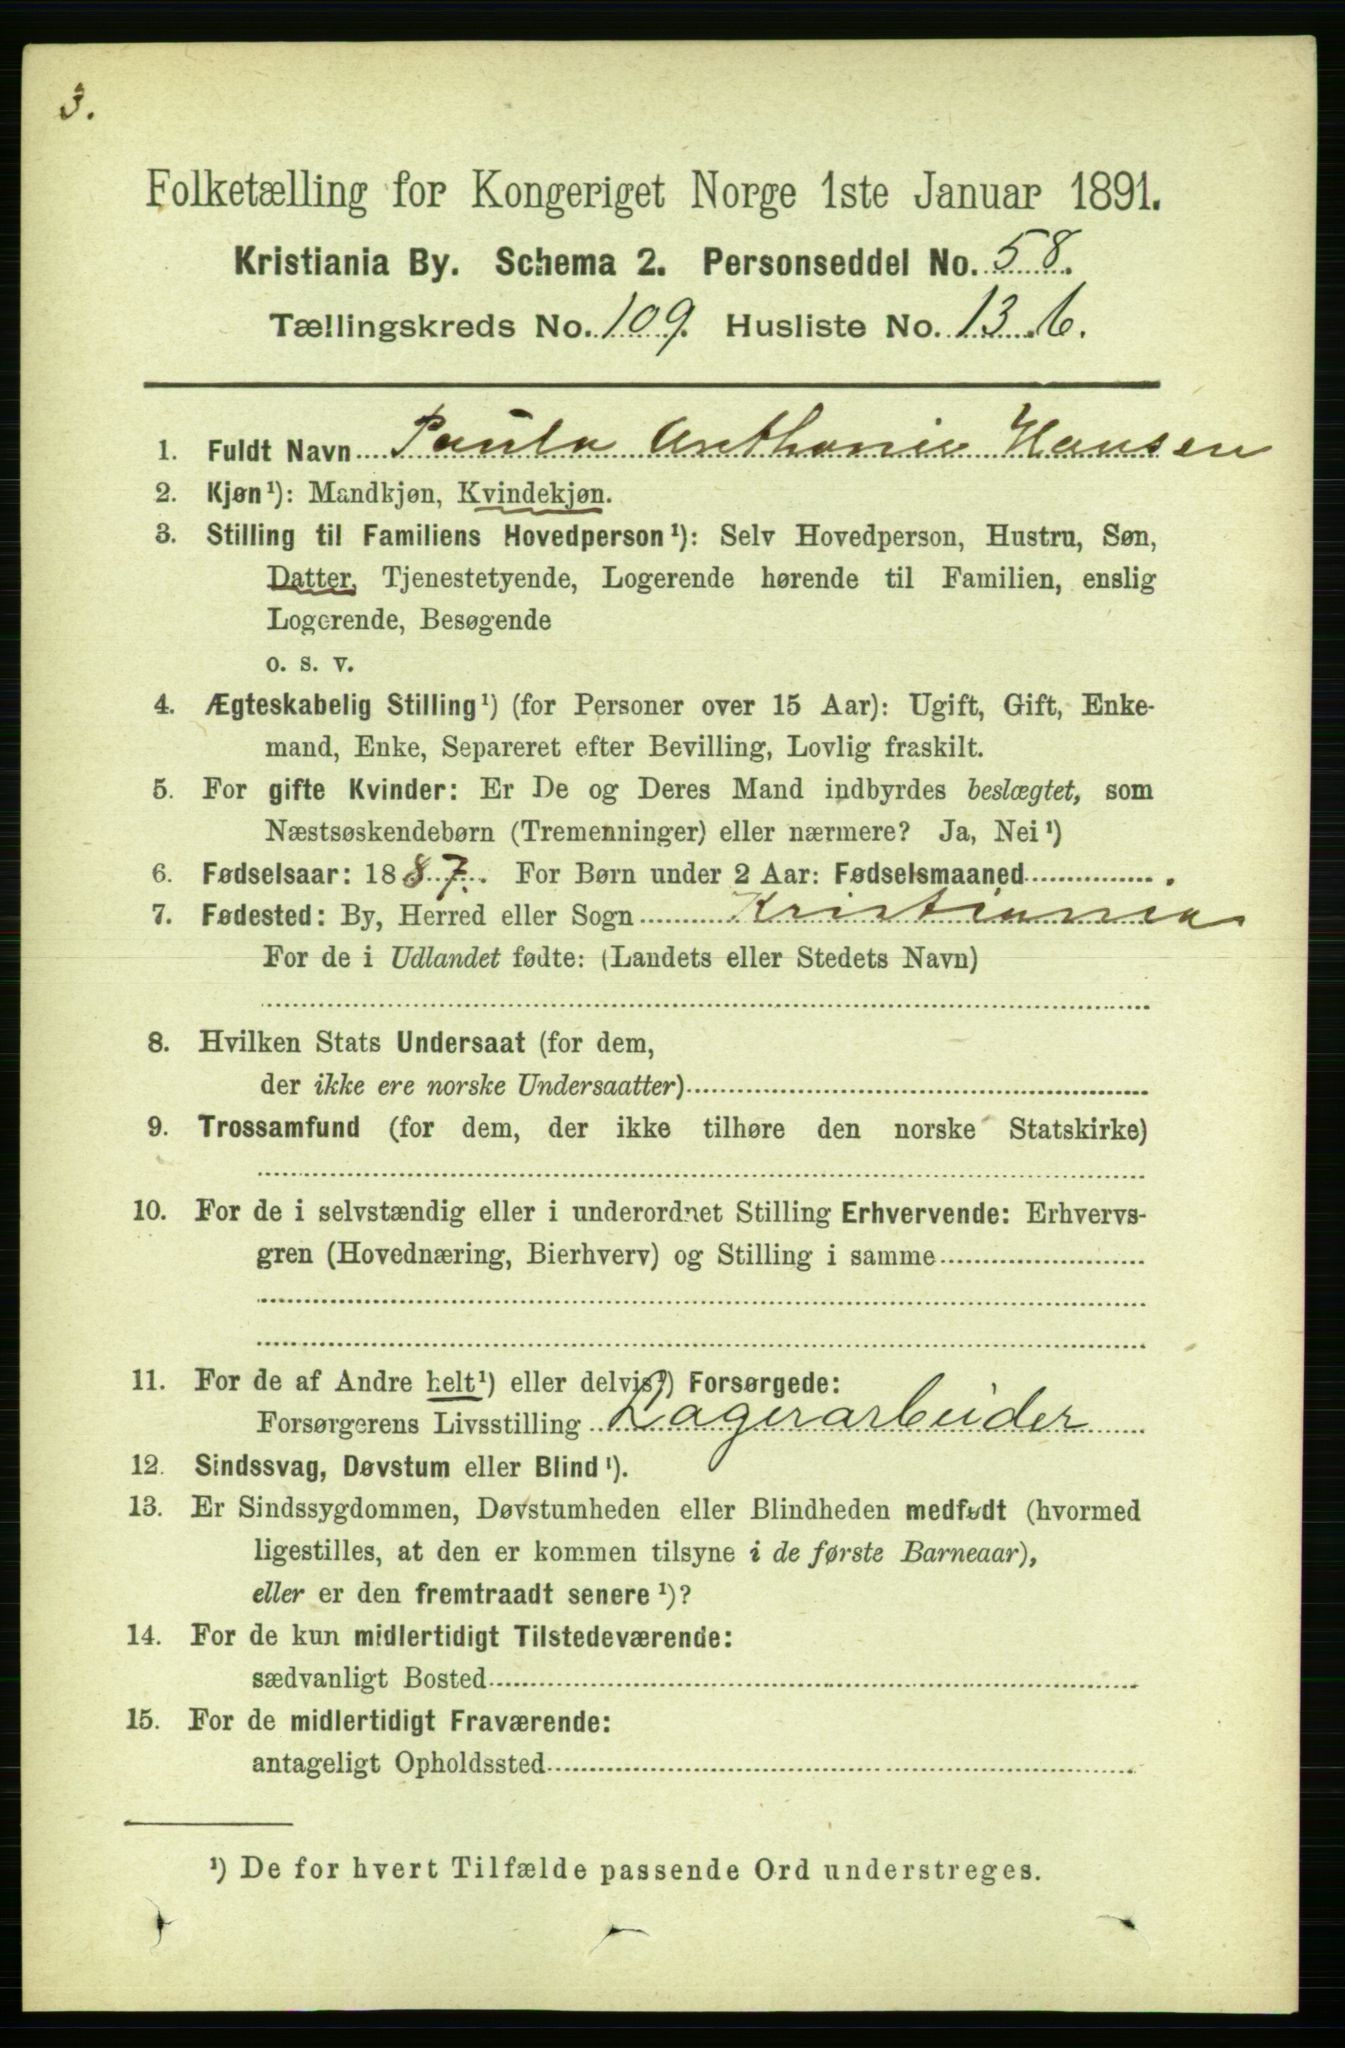 3.
Folketælling for Kongeriget Norge 1ste Januar 1891.
Kristiania By. Schema 2. Personseddel No. 58.
Tællingskreds No. 109. Husliste No. 13.b.
1. Fuldt Navn Paula Anthonie Hansen
2. Kjøn¹): Mandkjøn, Kvindekjøn.
3. Stilling til Familiens Hovedperson¹): Selv Hovedperson, Hustru, Søn,
Datter, Tjenestetyende, Logerende hørende til Familien, enslig
Logerende, Besøgende
o. s. v.
4. Ægteskabelig Stilling¹) (for Personer over 15 Aar): Ugift, Gift, Enke-
mand, Enke, Separeret efter Bevilling, Lovlig fraskilt.
5. For gifte Kvinder: Er De og Deres Mand indbyrdes beslægtet, som
Næstsøskendebørn (Tremenninger) eller nærmere? Ja, Nei¹)
6. Fødselsaar: 1887. For Børn under 2 Aar: Fødselsmaaned
7. Fødested: By, Herred eller Sogn Kristiania
For de i Udlandet fødte: (Landets eller Stedets Navn)
8. Hvilken Stats Undersaat (for dem,
der ikke ere norske Undersaatter)
9. Trossamfund (for dem, der ikke tilhøre den norske Statskirke)
10. For de i selvstændig eller i underordnet Stilling Erhvervende: Erhvervs-
gren (Hovednæring, Bierhverv) og Stilling i samme
11. For de af Andre helt¹) eller delvis¹) Forsørgede:
Forsørgerens Livsstilling Lagerarbeider
12. Sindssvag, Døvstum eller Blind¹).
13. Er Sindssygdommen, Døvstumheden eller Blindheden medfødt (hvormed
ligestilles, at den er kommen tilsyne i de første Barneaar),
eller er den fremtraadt senere¹)?
14. For de kun midlertidigt Tilstedeværende:
sædvanligt Bosted
15. For de midlertidigt Fraværende:
antageligt Opholdssted
¹) De for hvert Tilfælde passende Ord understreges.